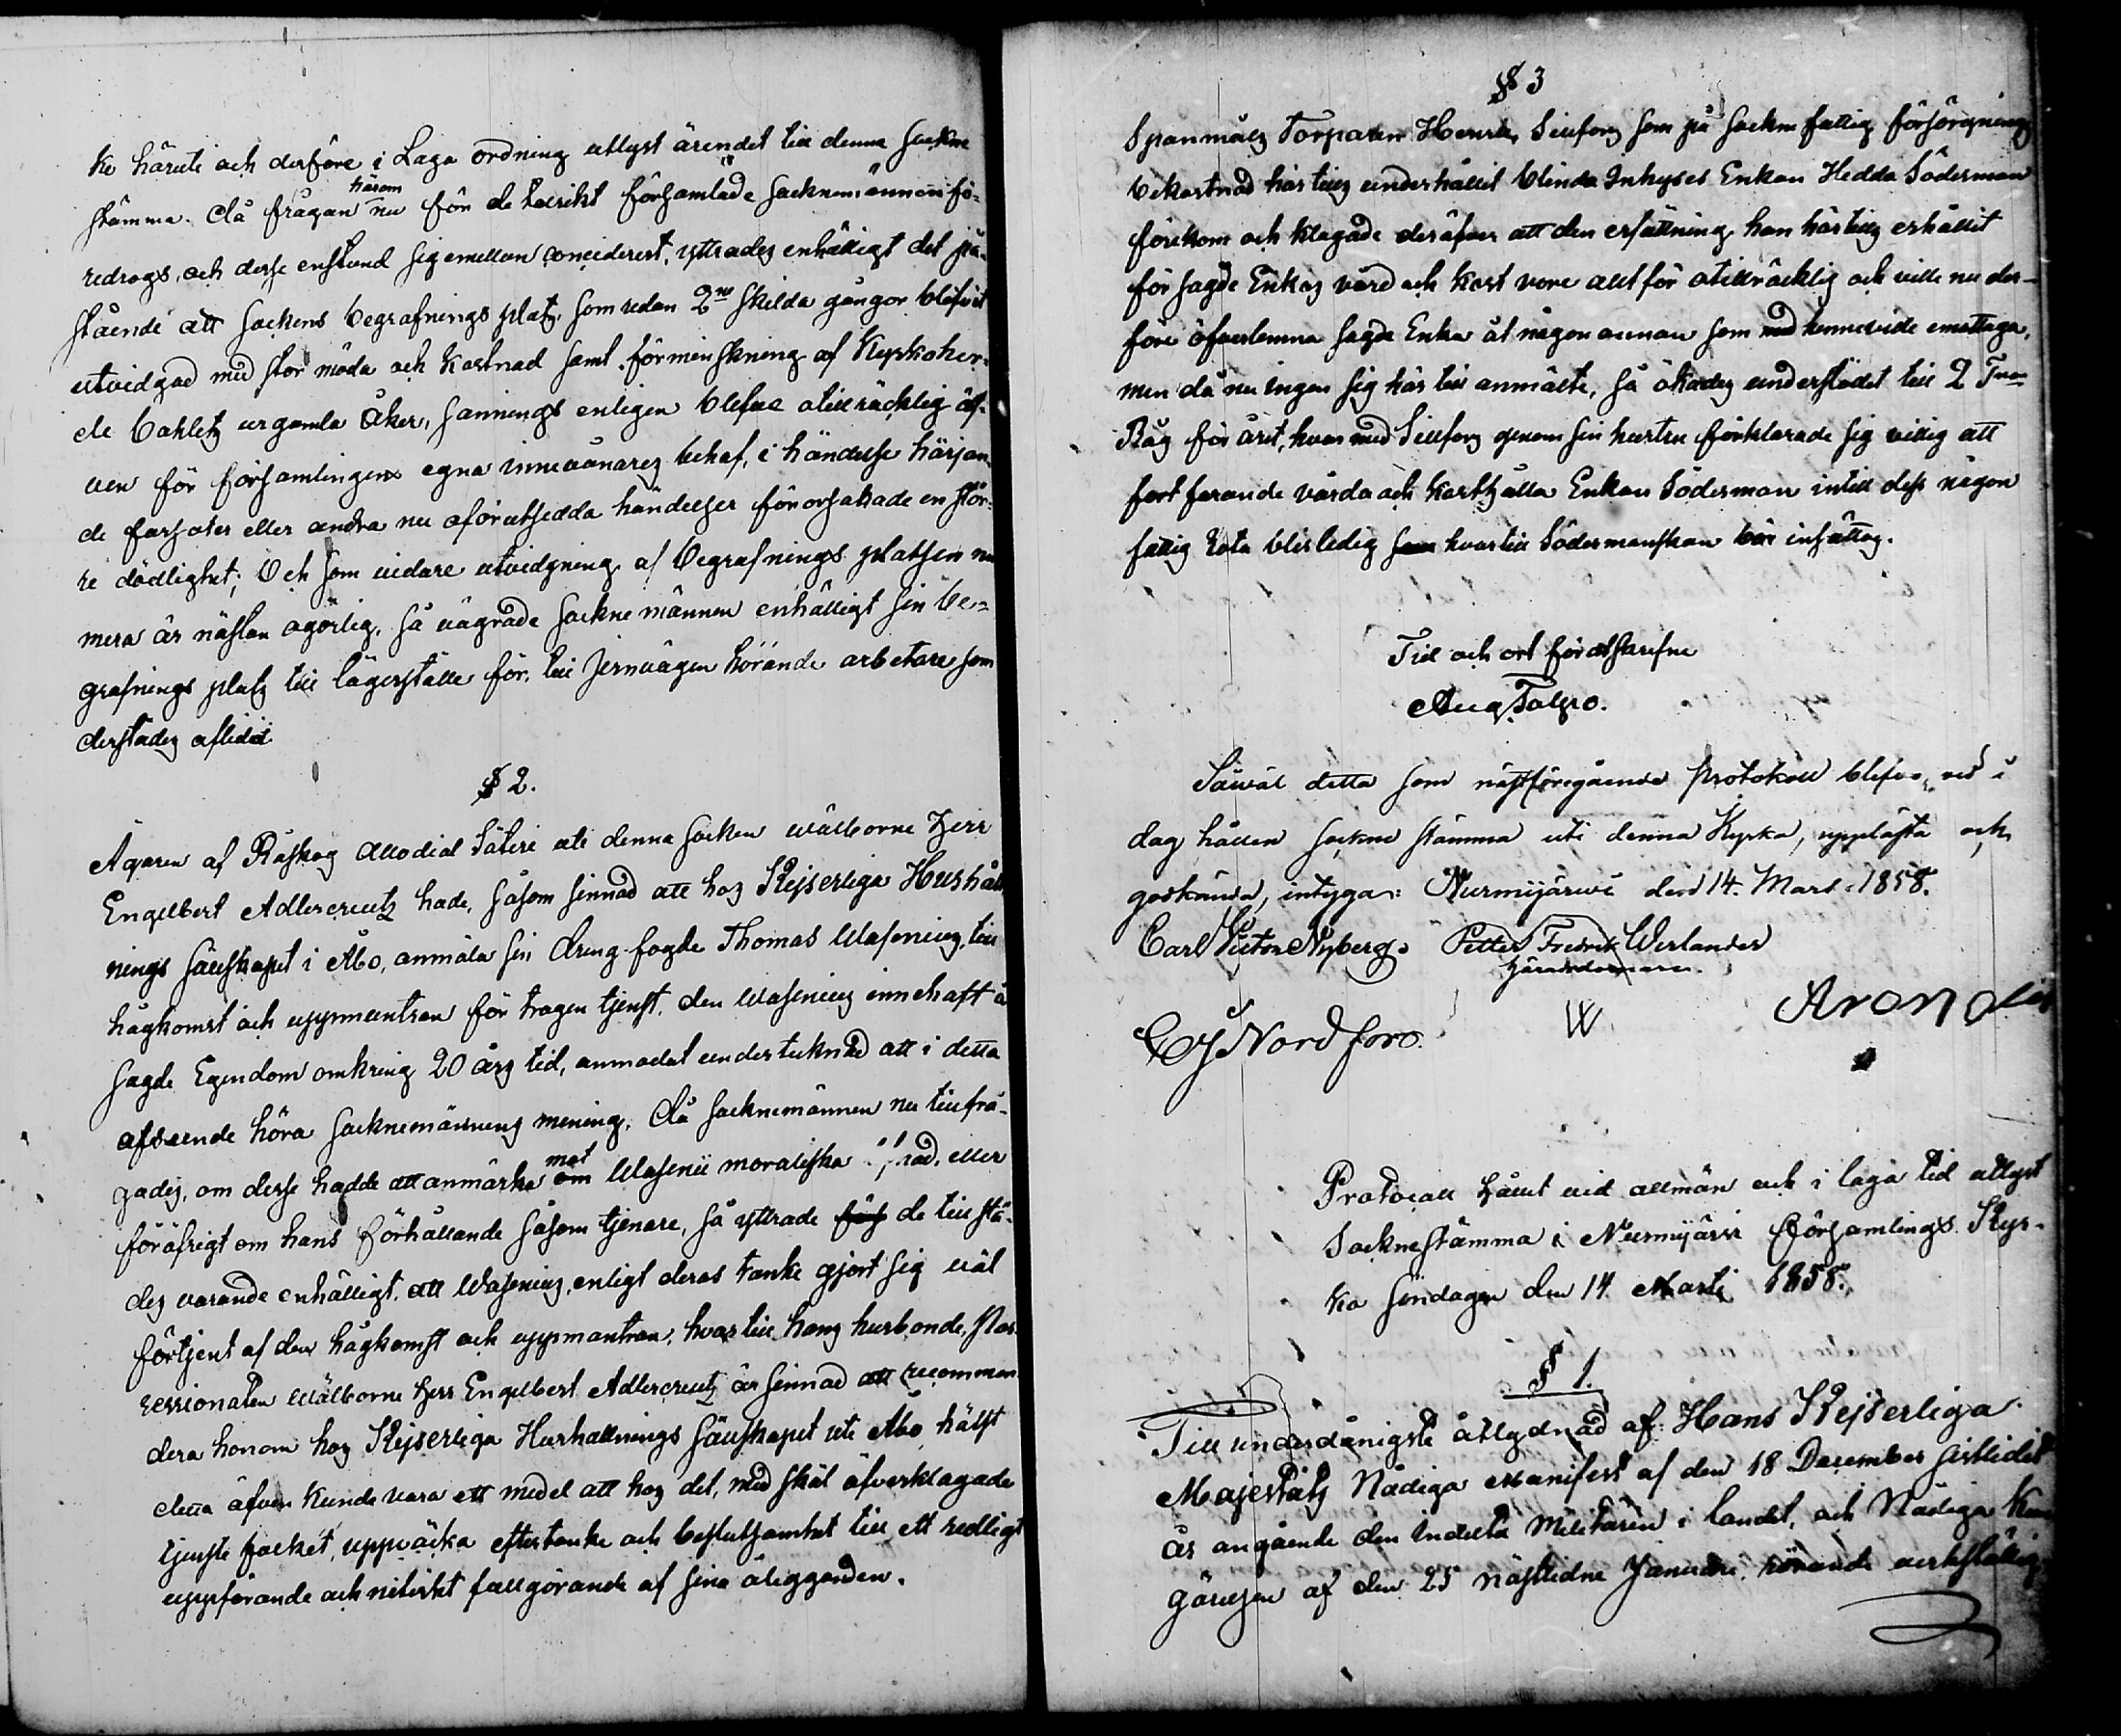 ke häruti och derföre i Laga ordning utlyst ärendet till denna Sockne
stämma. Då frågan härom nu för de talrikt församlade Socknemännen fö-
redrogs, och desse enstund sig emellan conciderert, yttrades enhälligt det på-
stående att Sockens begrafnings plats, som redan 2ne skilda gångor blifvit
utvidgad med stor möda och kostnad samt förminskning af Kyrkoher-
de bohlets urgamla Åker, sannings enligen blefve otillräcklig äf-
ven för församlingens egna innevånares behof, i händelse härjan-
de farsoter eller andra nu oförutsedda händelser förorsakade en stör-
re dödlighet; Och som vidare utvidgning af begrafnings platsen nu
mera är nästan ogörlig, så vägrade Socknemännen enhälligt sin be-
grafnings plats till lägerställe för till Jernvägen hörande arbetare som
derstädes aflidit.
§ 2.
Ägaren af Råskog Allodial Säteri uti denna Socken wälborne Herr
Engelbert Adlercreutz hade, såsom sinnad att hos Kejserliga Hushåll
nings sällskapet i Åbo, anmäla sin dreng fogde Thomas Wasenius, till
hågkomst och uppmuntran för trogen tjenst, den Wasenius innehaft å
sagde Egendom omkring 20 års tid, anmodat undertecknad att i detta
afseende höra Socknemännens mening. Då Socknemännen nu tillfrå-
gades, om desse hadde att anmärka mot om Wasenii moraliska eller
föröfrigt om hans förhållande såsom tjenare, så yttrade de till stä-
des varande enhälligt, att Wasenius, enligt deras tanke gjort sig väl
förtjent af den hågkomst och uppmuntran, hvartill hans husbonde,
Wälborne Herr Engelbert Adlercreutz är sinnad att recommen
dera honom hos Kejserliga Hushallnings Sällskapet uti Åbo, hälst
detta äfven kunde vara ett medel att hos det, med skäl öfverklagade
tjenste folket, uppväcka eftertanke och beslutsamhet till ett redligt
uppförande och nitiskt fullgörande af sina åligganden.
§ 3
Spanmåls Torparen Henrik Sillfors som på Sockne fattig försörgnings
bekostnad härtills underhållit blinda Inhyses Enkan Hedda Söderman
förekom och klagade deröfver att den ersättning han härtills erhållit
för sagde Enkas vård och kost vore allt för otillräcklig och ville nu der-
före öfverlemna sagde Enka åt någon annan som med henne vide emottaga,
men då nu ingen sig här till anmälte, så ökades understödet till 2 Tnor
Råg för året, hvarmed Sillfors genom sin hustru förklarade sig villig att
fort farande vårda och kosthålla Enkan Söderman intill dess någon
fattig Rota blir ledig hvartill Södermanskan bör insättas.
Tid och ort förutskrefne
Aug Falcro.
Såwäl detta som nästföregående Protokoll blefvo, vid i
dag hållen sockne stämma uti denna Kyrka, upplästa och
godkända, intyga: Nurmijärwi den 14. Mars. 1858.
Carl Victor Nyberg. Petter Fredrik Werlander
Häradsdomaren.
Nordfors. W Aron
Protocoll hållet vid allmän och i laga tid utlyst
Socknestämma i Nurmijärvi församlings Kyr-
ka Söndagen den 14 Martii 1858.
§ 1.
Till underdånigste åtlydnad af Hans Kejserliga
Majestäts Nådiga Manifest af den 18 December sistlidit
år angående den Indelta Militären i landet, och Nådiga Kun
görelsen af den 25 nästlidne Januari, rörande verkställig